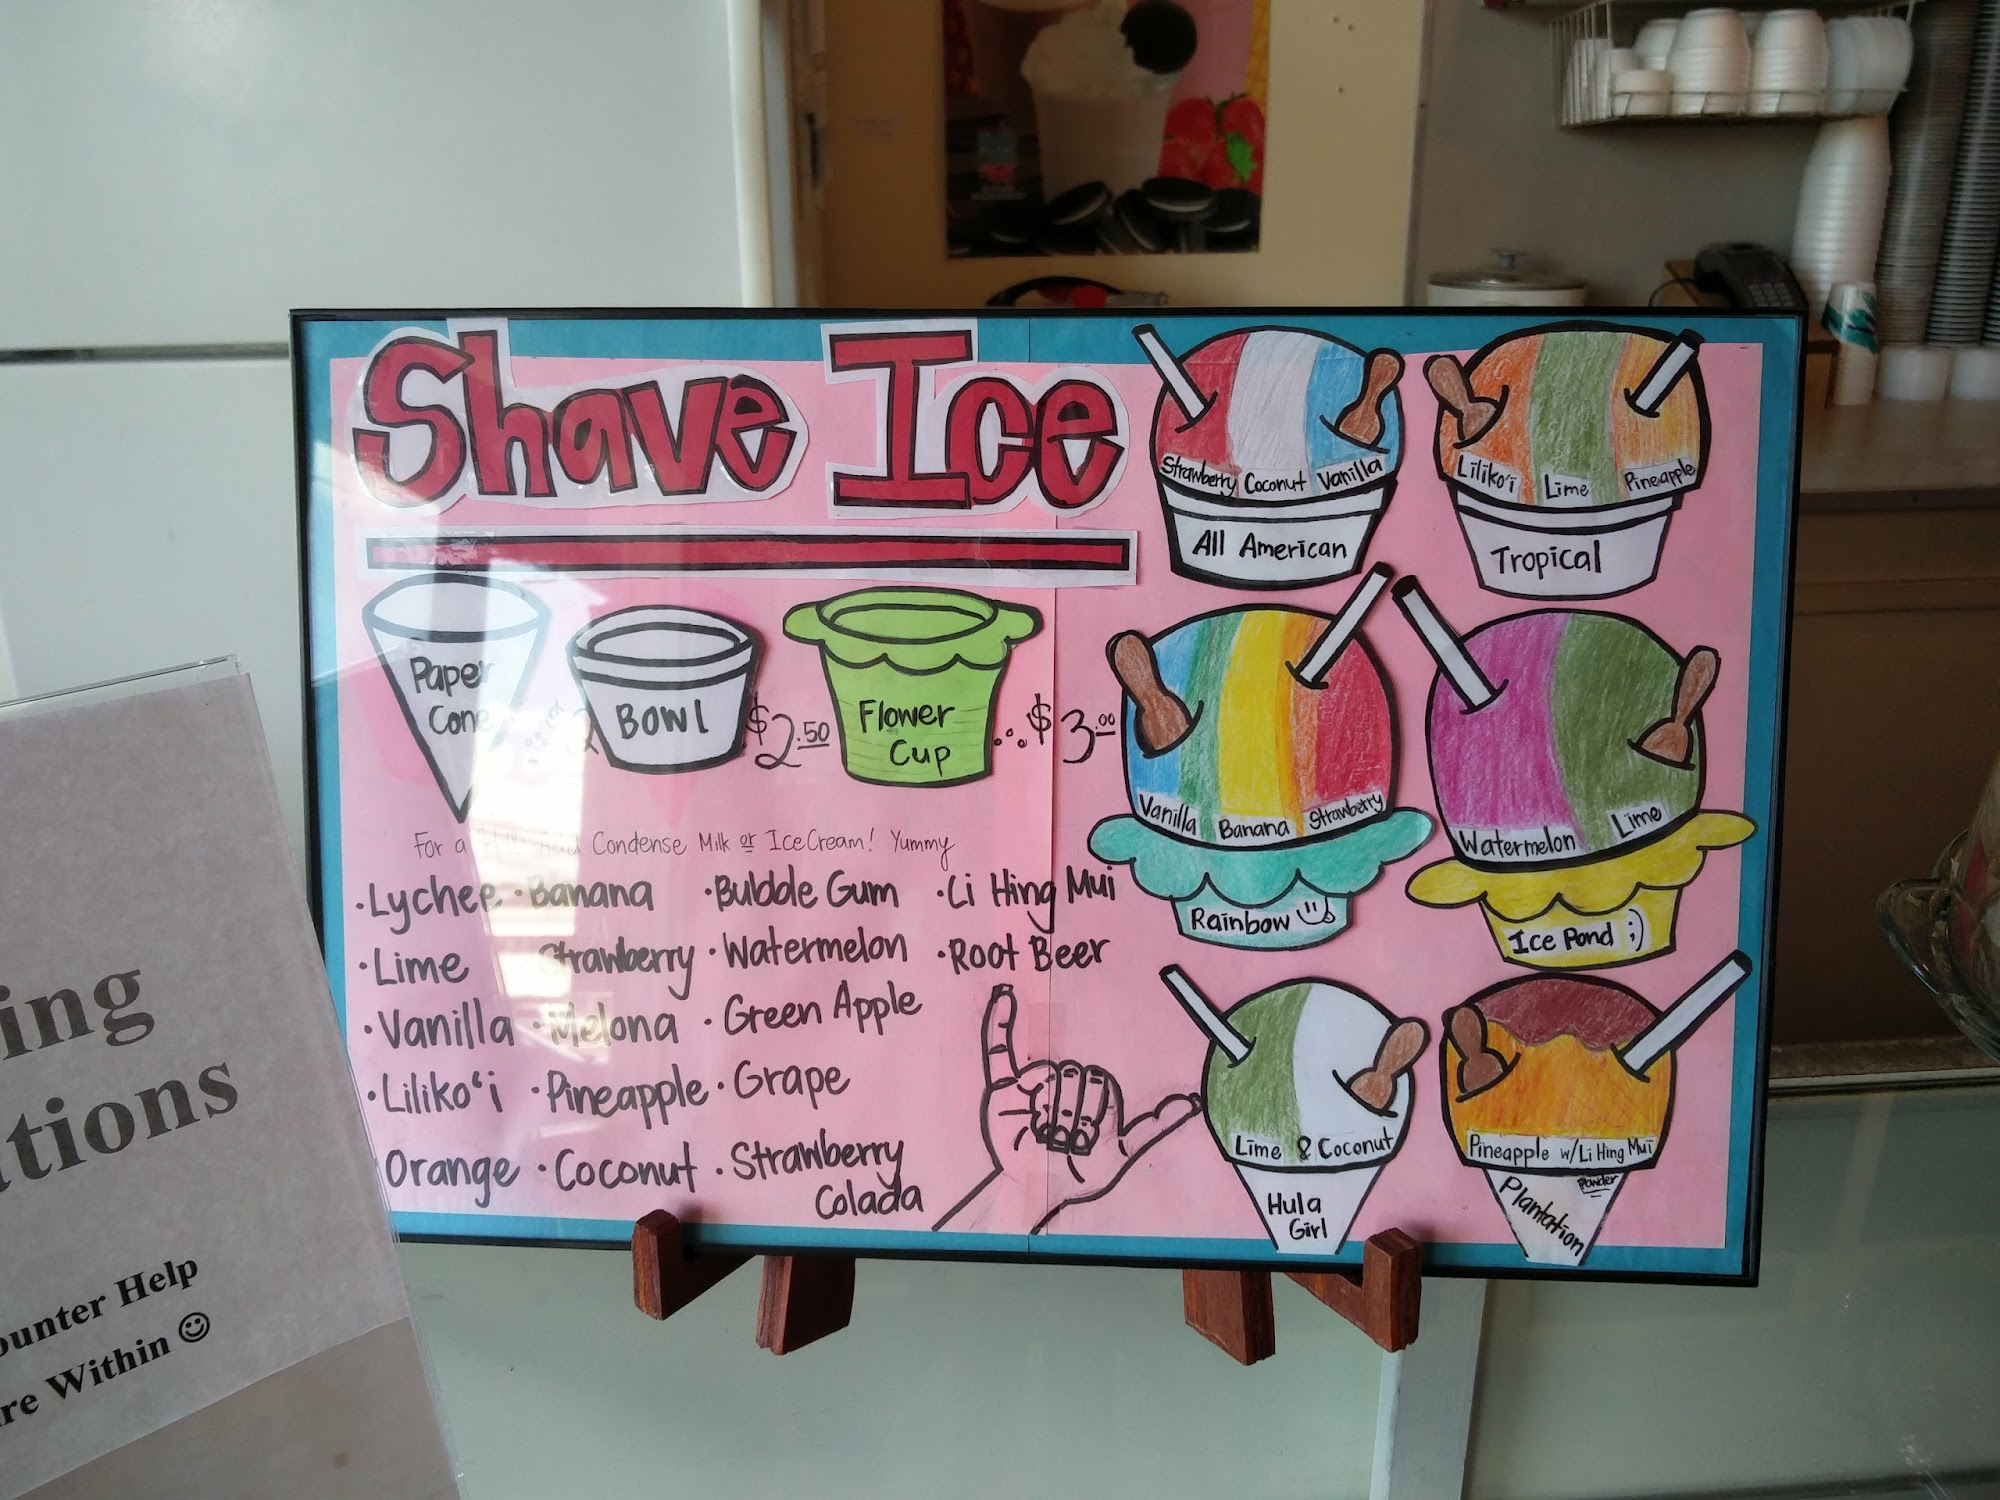 Shave Ice
Paper
Cone
BOWL
$2.50
Flower
Cup
...$3.00
For a $1.00 Add Condense Milk or Ice Cream! Yummy
·Lychee ·Banana ·Bubble Gum ·Li Hing Mui
·Lime Strawberry ·Watermelon ·Root Beer
·Vanilla ·Melona ·Green Apple
·Liliko‘i ·Pineapple ·Grape
Orange ·Coconut ·Strawberry
Colada
Strawberry Coconut Vanilla
All American
Liliko'i Lime Pineapple
Tropical
Vanilla Banana Strawberry
Rainbow
Watermelon Lime
Ice Pond ;)
Lime & Coconut
Hula
Girl
Pineapple w/Li Hing Mui
Powder
Plantation
ing
ations
ounter Help
re Within ☺